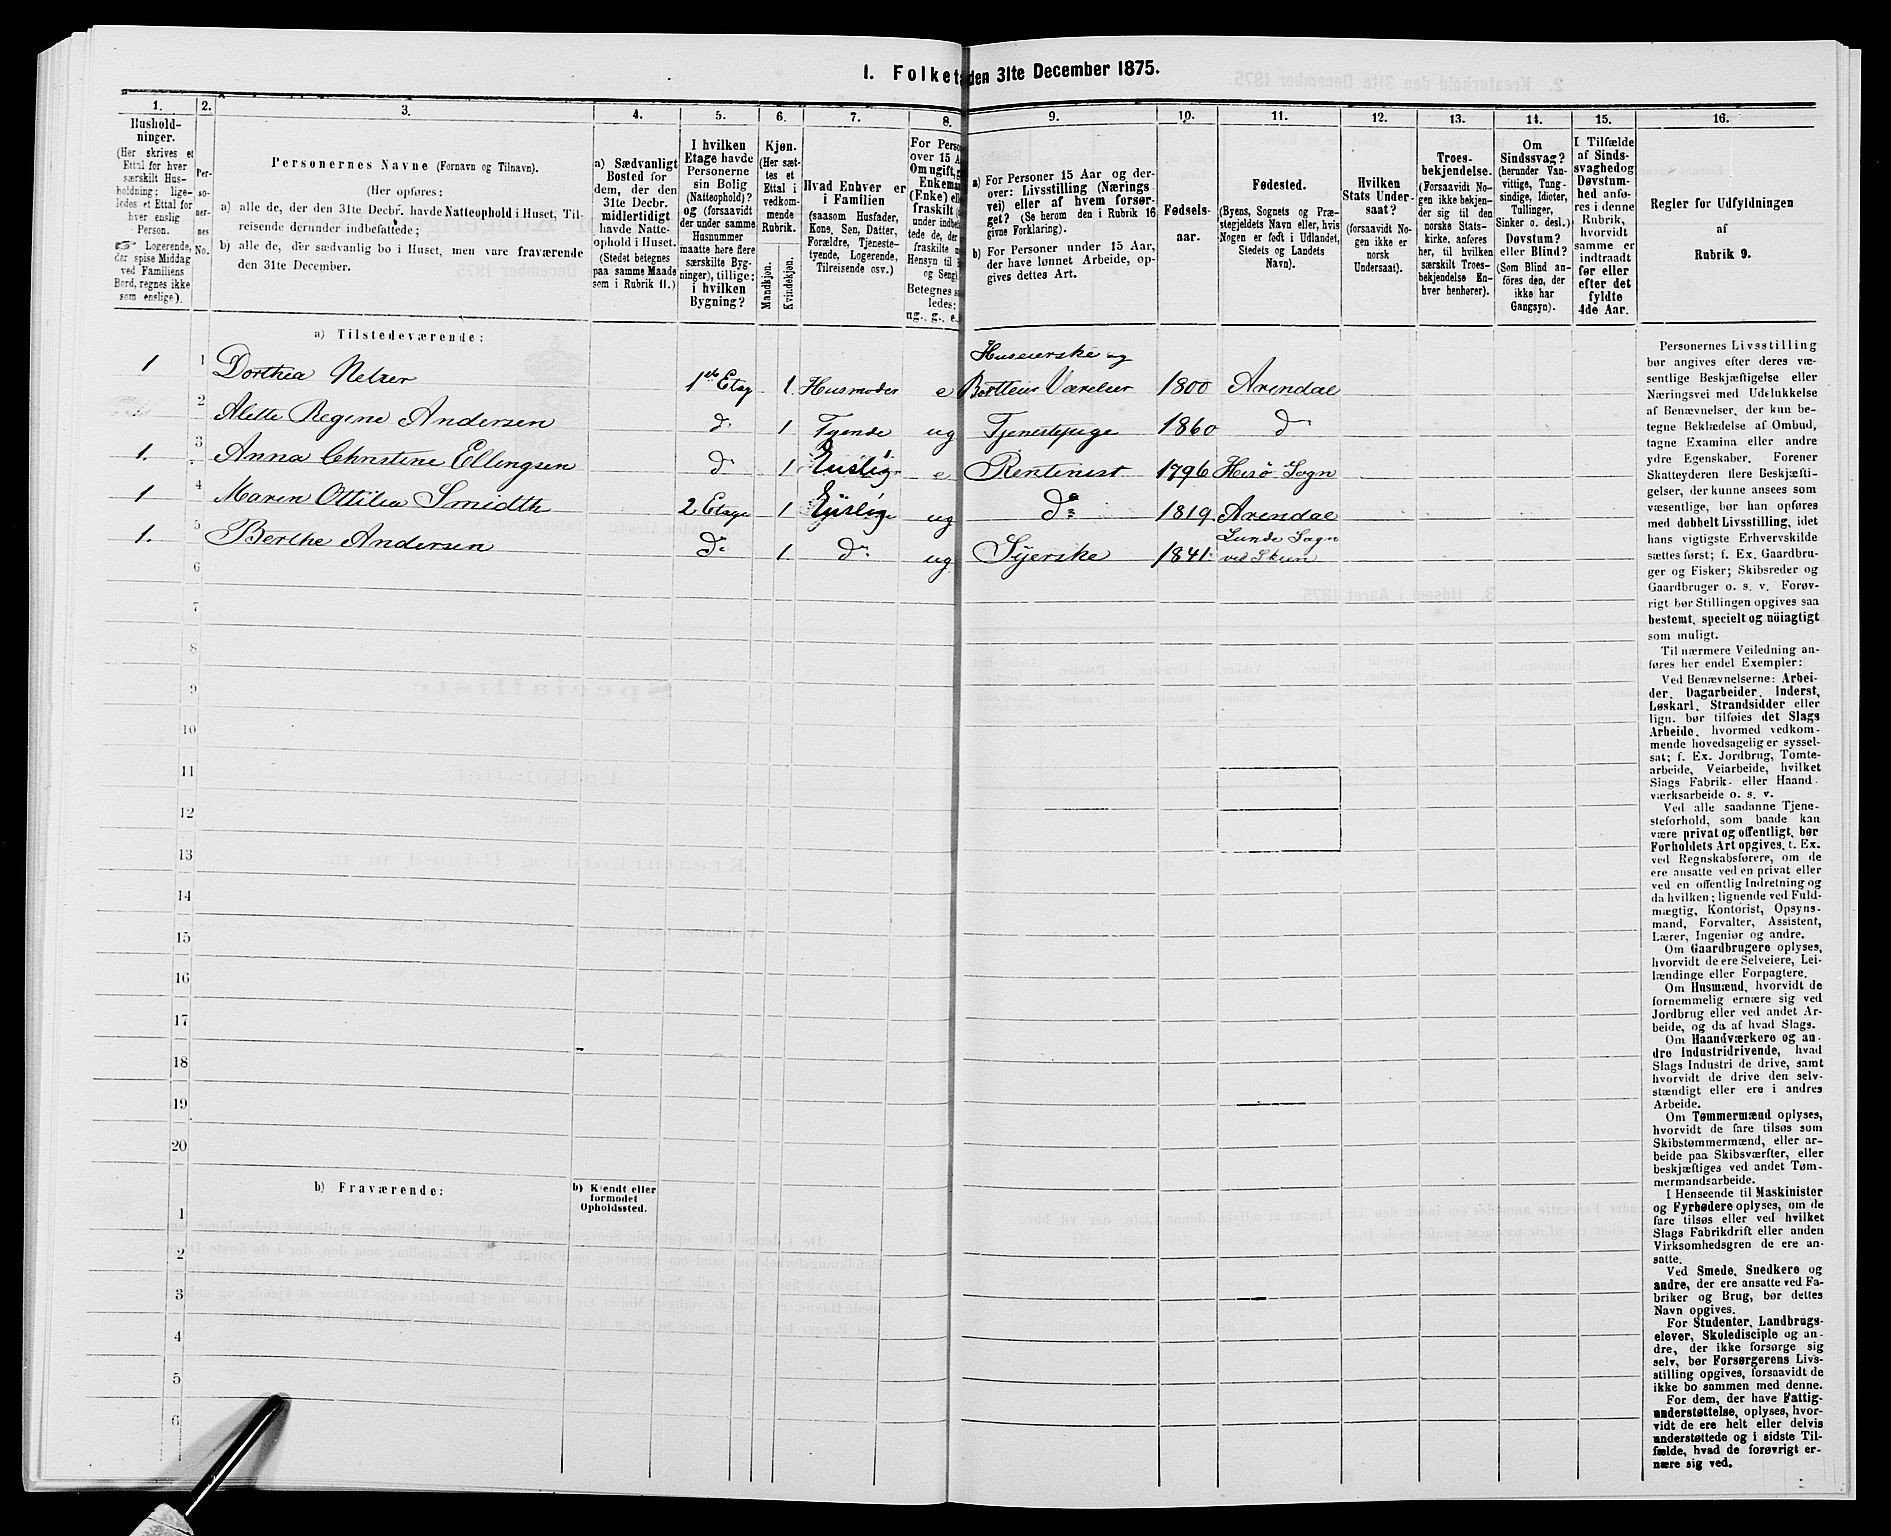 I. Folket den 31te December 1875.
1. 2. 3. 4. 5. 6. 7. 8. 9. 10. 11. 12. 13. 14. 15. 16.
Hushold-
ninger.
(Her skrives et
Ettal for hver
særskilt Hus-
holdning; lige-
ledes et Ettal for
hver enslig
Person.
☞ Logerende,
der spise Middag
ved Familiens
Bord, regnes ikke
som enslige).
Per-
so-
ner-
nes
No.
Personernes Navne (Fornavn og Tilnavn).
(Her opføres:
a) alle de, der den 31te Decbr. havde Natteophold i Huset, Til-
reisende derunder indbefattede;
b) alle de, der sædvanlig bo i Huset, men vare fraværende
den 31te December.
a) Sædvanligt
Bosted for
dem, der den
31te Decbr.
midlertidigt
havde Natte-
ophold i Huset.
(Stedet betegnes
paa samme Maade
som i Rubrik 11.)
I hvilken
Etage havde
Personerne
sin Bolig
(Natteophold)?
og (forsaavidt
der under samme
Husnummer
maatte here flere
særskilte Byg-
ninger), tillige:
i hvilken
Bygning?
Kjøn.
(Her sæt-
tes et
Ettal i
vedkom-
mende
Rubrik.
Mandkjøn.
Kvindekjøn.
Hvad Enhver er
i Familien
(saasom Husfader,
Kone, Søn, Datter,
Forældre, Tjeneste-
tyende, Logerende,
Tilreisende osv.)
For Perso
over 15 A
Om ugift, g
Enkema
(Enke) el
fraskilt
under indbe
tede de,
fraskilte
Hensyn til
og Seng
Betegnes s
ledes:
ug., g., e.
a) For Personer 15 Aar og der-
over: Livsstilling (Nærings
vei) eller af hvem forsør-
get? (Se herom den i Rubrik 16
givne Forklaring).
b) For Personer under 15 Aar,
der have lønnet Arbeide, op-
gives dettes Art.
Fødsels-
aar.
Fødested.
(Byens, Sognets og Præ-
stegjeldets Navn eller, hvis
Nogen er født i Udlandet,
Stedets og Landets
Navn).
Hvilken
Stats Under-
saat?
(forsaavidt No-
gen ikke er
norsk
Undersaat).
Troes-
bekjendelse.
(Forsaavidt No-
gen ikke bekjen-
der sig til den
norske Stats-
kirke, anføres
her, til hvilken
særskilt Troes-
bekjendelse En-
hver henhører).
Om
Sindssvag?
(herunder Van-
vittige, Tung-
sindige, Idioter,
Tullinger,
Sinker o. desl.)
Døvstum?
eller Blind?
(Som Blind an-
føres den, der
ikke har
Gangsyn).
I Tilfælde
af Sinds-
svaghed og
Døvstum-
hed anfø-
res i denne
Rubrik,
hvorvidt
samme er
indtraadt
før eller
efter det
fyldte
4de Aar.
Regler for Udfyldningen
af
Rubrik 9.
a) Tilstedeværende:
1 1 Dorthea Nelzer 1ste Etag 1 Husmoder e Huseierske og Bortleier Værelser 1800 Arendal
2 Alette Regine Andersen d. 1 Tyende ug Tjenestepige 1860 d
1. 3 Anna Christine Ellingsen d 1 Enslig e Rentenist 1796 Hisö Sogn
1 4 Maren Ottilia Smidth 2 Etage 1 Enslig ug do 1819 Arendal
1. 5 Berthe Andersen do 1 do ug Syerske 1841. Lunde Sogn ved Skien
6
7
8
9
10
11
12
13
14
15
16
17
18
19
20
b) Fraværende:
b) Kjendt eller
formodet
Opholdssted.
1
2
3
4
5
6
Personernes Livsstilling
bør angives efter deres væ-
sentlige Beskjæftigelse eller
Næringsvei med Udelukkelse
af Benævnelser, der kun be-
tegne Beklædelse af Ombud,
tagne Examina eller andre
ydre Egenskaber. Forener
Skatteyderen flere Beskjæfti-
gelser, der kunne ansees som
væsentlige, bør han opføres
med dobbelt Livsstilling, idet
hans vigtigste Erhvervskilde
sættes først; f. Ex. Gaardbru-
ger og Fisker; Skibsreder og
Gaardbruger o. s. v. Forøv-
rigt bør Stillingen opgives saa
bestemt, specielt og nöiagtigt
som muligt.
Til nærmere Veiledning an-
føres her endel Exempler:
Ved Benævnelserne: Arbei-
der, Dagarbeider, Inderst,
Løskarl, Strandsidder eller
lign. bør tilføies det Slags
Arbeide, hvormed vedkom-
mende hovedsagelig er syssel-
sat; f. Ex. Jordbrug, Tomte-
arbeide, Veiarbeide, hvilket
Slags Fabrik- eller Haand-
værksarbeide o. s. v.
Ved alle saadanne Tjene-
steforhold, som baade kan
være privat og offentligt, bør
Forholdets Art opgives, t. Ex.
ved Regnskabsførere, om de
ere ansatte ved en privat eller
ved en offentlig Indretning og
da hvilken; lignende ved Fuld-
mægtig, Kontorist, Opsyns-
mand, Forvalter, Assistent,
Lærer, Ingeniør og andre.
Om Gaardbrugere oplyses,
hvorvidt de ere Selveiere, Lei-
lændinge eller Forpagtere.
Om Husmænd, hvorvidt de
fornemmelig ernære sig ved
Jordbrug eller ved andet Ar-
beide, og da af hvad Slags.
Om Haandværkere og an-
dre Industridrivende, hvad
Slags Industri de drive, samt
hvorvidt de drive den selv-
stændigt eller ere i andres
Arbeide.
Om Tømmermænd oplyses,
hvorvidt de fare tilsøs som
Skibstømmermænd, eller ar-
beide paa Skibsværfter, eller
beskjæftiges ved andet Tøm-
mermandsarbeide.
I Henseende til Maskinister
og Fyrbødere oplyses, om de
fare tilsøs eller ved hvilket
Slags Fabrikdrift eller anden
Virksomhedsgren de ere an-
satte.
Ved Smede, Snedkere og
andre, der ere ansatte ved Fa-
briker og Brug, bør dettes
Navn opgives.
For Studenter, Landbrugs-
elever, Skoledisciple og an-
dre, der ikke forsørge sig
selv, bør Forsørgerens Livs-
stilling opgives, forsaavidt de
ikke bo sammen med denne.
For dem, der have Fattig-
understøttelse, oplyses, hvor-
vidt de ere helt eller delvis
understøttede og i sidste Til-
fælde, hvad de forøvrigt er-
nære sig ved.